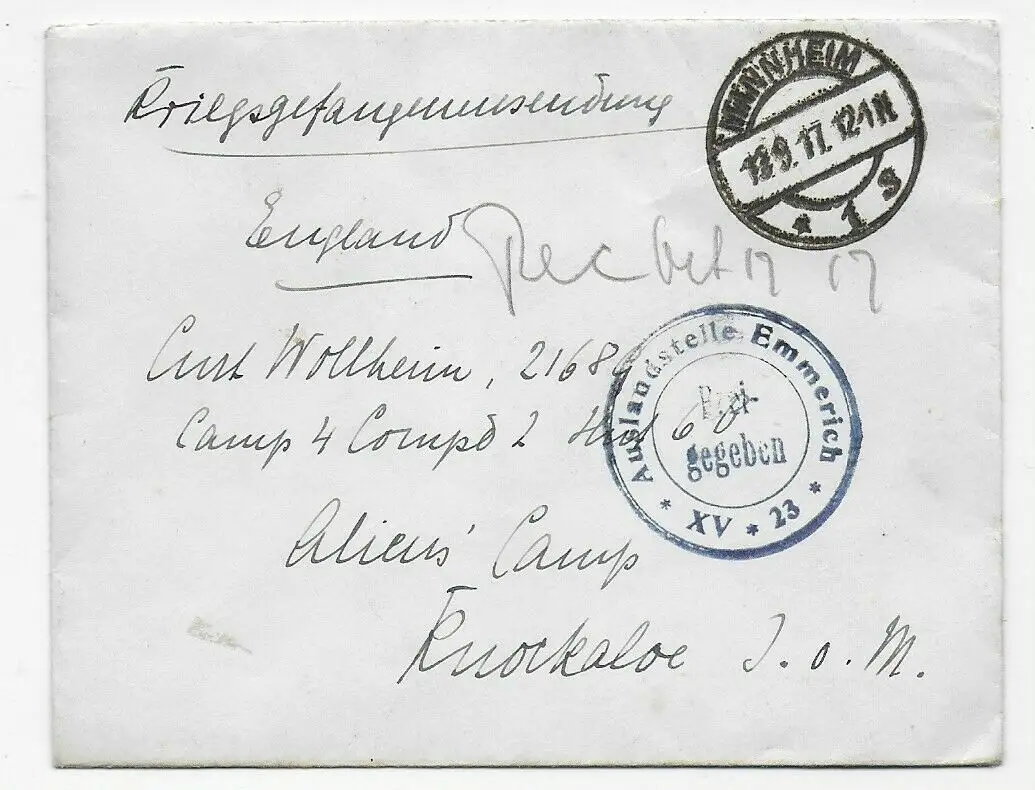 Kriegsgefangenensendung
MANNHEIM
18.9.17. 12-1 N
* 1 s
England
Rec Oct 17 17
Curt Wollheim, 2168
Camp 4 Compd 2 Hut 6
Auslandstelle Emmerich
Frei-
gegeben
* XV * 23 *
Aliens' Camp
Knockaloe I. o. M.